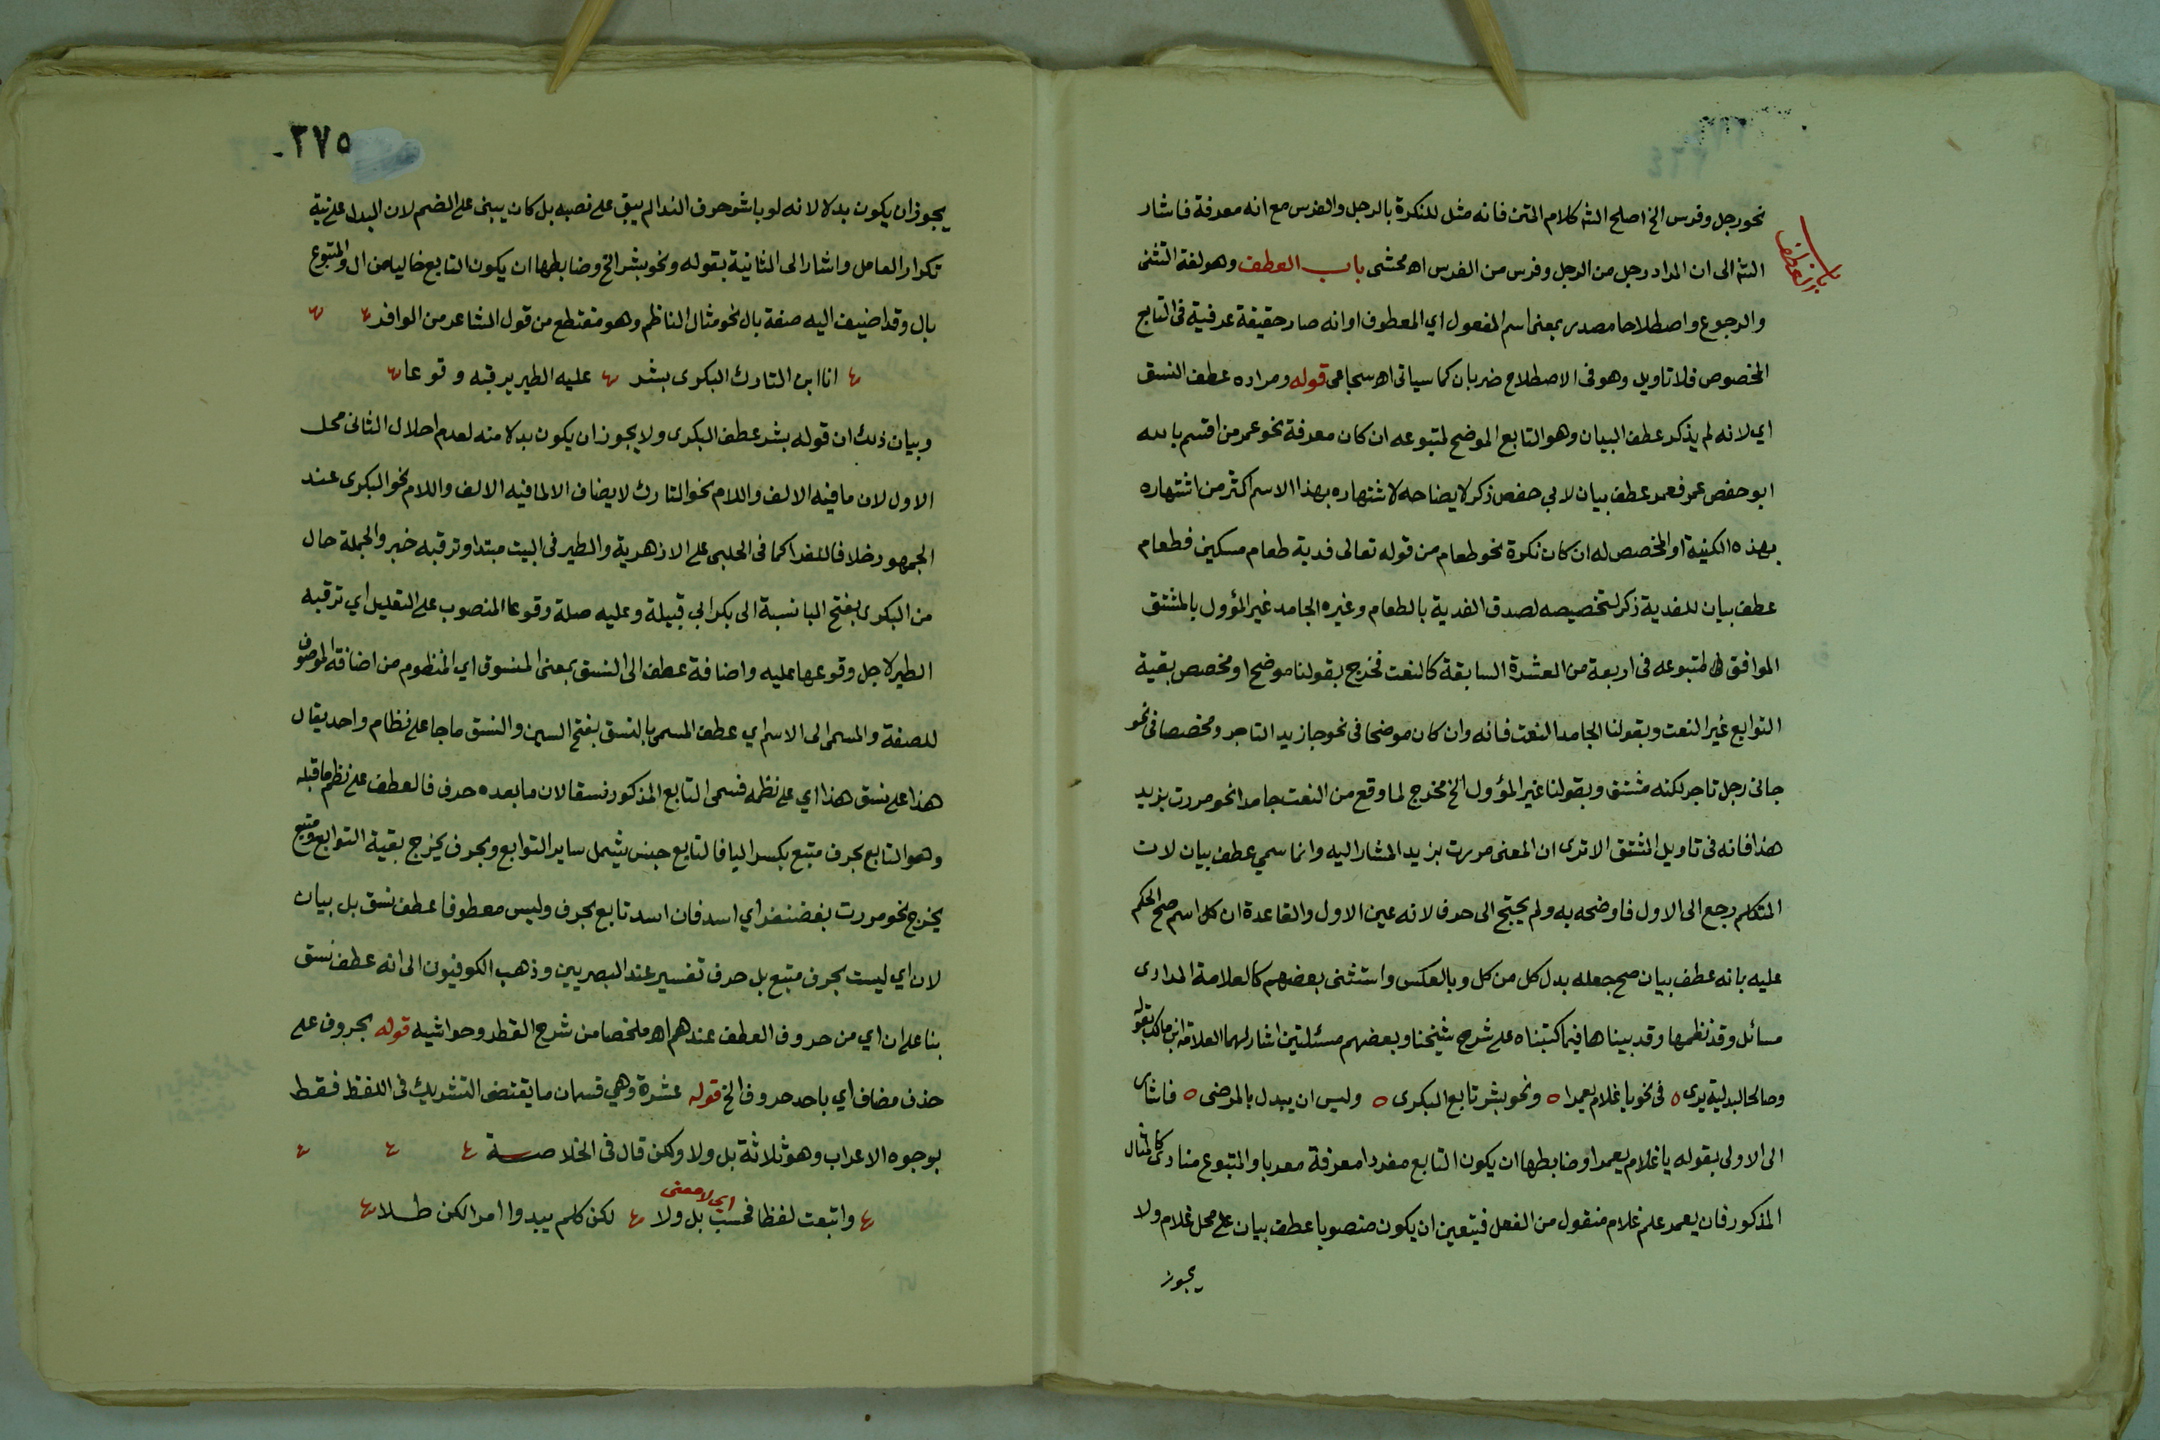 نحو رجل وفرس الخ اصلح الشه كلام المتن فانه مثل للنكرة بالرجل والفرس مع انه معرفة فاشار
باب العطف
الشه الى ان المراد رجل من الرجل وفرس من الفرس اه محشى باب العطف وهو لغة التثنى
والرجوع واصطلاحا مصدر بمعنى اسم المفعول اي المعطوف او انه صار حقيقة عرفية في التابع
المخصوص فلا تاويل وهو في الاصطلاح ضربان كما سياتى اه سجاعى قوله ومراده عطف النسق
اي لانه لم يذكر عطف البيان وهو التابع الموضح لمتبوعه ان كان معرفة نحو عمر من اقسم بالله
ابو حفص عمر فعمر عطف بيان لابي حفص ذكر لايضاحه لاشتهاره بهذا الاسم اكثر من اشتهاره
بهذه الكنية او المخصص له ان كان نكرة نحو طعام من قوله تعالى فدية طعام مسكين فطعام
عطف بيان للفدية ذكر لتخصيصه لصدق الفدية بالطعام وغيره الجامد غير المؤول بالمشتق
الموافق لمتبوعه في اربعة من العشرة السابقة كالنعت فخرج بقولنا موضح او مخصص بقية
التوابع غير النعت وبقولنا الجامد النعت فانه وان كان موضحا في نحو جا زيد التاجر ومخصصا في نحو
جاني رجل تاجر لكنه مشتق وبقولنا غير المؤول الخ مخرج لما وقع من النعت جامدا نحو مررت بزيد
هذا فانه في تاويل المشتق الا ترى ان المعنى مررت بزيد المشار اليه وانما سمي عطف بيان لان
المتكلم رجع الى الاول فاوضحه به ولم يحتج الى حرف لانه عين الاول والقاعدة ان كل اسم صح الحكم
عليه بانه عطف بيان صح جعله بدل كل من كل وبالعكس واستثنى بعضهم كالعلامة المرادى
مسائل وقد نظمها وقد بيناها فيما كتبناه على شرح شيخنا وبعضهم مسئلتين اشار لهما العلامة ابن مالك بقوله
وصالحا لبدلية يرى ٥ في نحو يا غلام يعمرا ٥ ونحو بشر تابع البكرى ٥ وليس ان يبدل بالمرضى ٥ فاشار
الى الاولى بقوله يا غلام يعمرا وضابطها ان يكون التابع مفردا معرفة معربا والمتبوع منادى كمثال
المذكور فان يعمر علم غلام منقول من الفعل فيتعين ان يكون منصوبا عطف بيان على محل غلام ولا
يجوز
٣٧٥
يجوز ان يكون بدلا لانه لو باشر حرف الندا لم يبق على نصبه بل كان يبنى على الضم لان البدل على نية
تكرار العامل واشار الى الثانية بقوله ونحو بشر الخ وضابطها ان يكون التابع خاليا من ال والمتبوع
بال وقد اضيف اليه صفة بال نحو مثال الناظم وهو مقتطع من قول الشاعر من الوافر
انا ابن التارك البكرى بشر عليه الطير يرقبه وقوعا
وبيان ذلك ان قوله بشر عطف البكرى ولا يجوز ان يكون بدلا منه لعدم احلال الثانى محل
الاول لان ما فيه الالف واللام نحو التارك لا يضاف الا لما فيه الالف واللام نحو البكرى عند
الجمهور خلافا للفرا كما في الحلبي على الازهرية والطير في البيت مبتدا وترقبه خبر والجملة حال
من البكرى بفتح البا نسبة الى بكر ابي قبيلة وعليه صلة وقوعا المنصوب على التعليل اي ترقبه
الطير لاجل وقوعها عليه واضافة عطف الى النسق بمعنى المنسوق اي المنظوم من اضافة الموصوف
للصفة والمسمى الى الاسم اي عطف المسمى بالنسق بفتح السين والنسق ما جا على نظام واحد يقال
هذا على نسق هذا اي على نظمه فسمى التابع المذكور نسقا لان ما بعده حرف فالعطف على نظم ما قبله
وهو التابع بحرف متبع بكسر اليا فالتابع جنس يشمل ساير التوابع وبحرف يخرج بقية التوابع ومتبع
يخرج نحو مررت بغضنفر اي اسد فان اسد تابع بحرف وليس معطوفا عطف نسق بل بيان
لان اي ليست بحرف متبع بل حرف تفسير عند البصريين وذهب الكوفيون الى انه عطف نسق
بنا على ان اي من حروف العطف عندهم اه ملخصا من شرح القطر وحواشيه قوله بحروف على
حذف مضاف اي باحد حروف الخ قوله عشرة وهي قسمان ما يقتضى التشريك في اللفظ فقط
بوجوه الاعراب وهو ثلاثة بل ولا ولكن قال في الخلاصة
اي لا معنى
واتبعت لفظا فحسب بل ولا لكن كلم يبدوا امرا لكن طلا